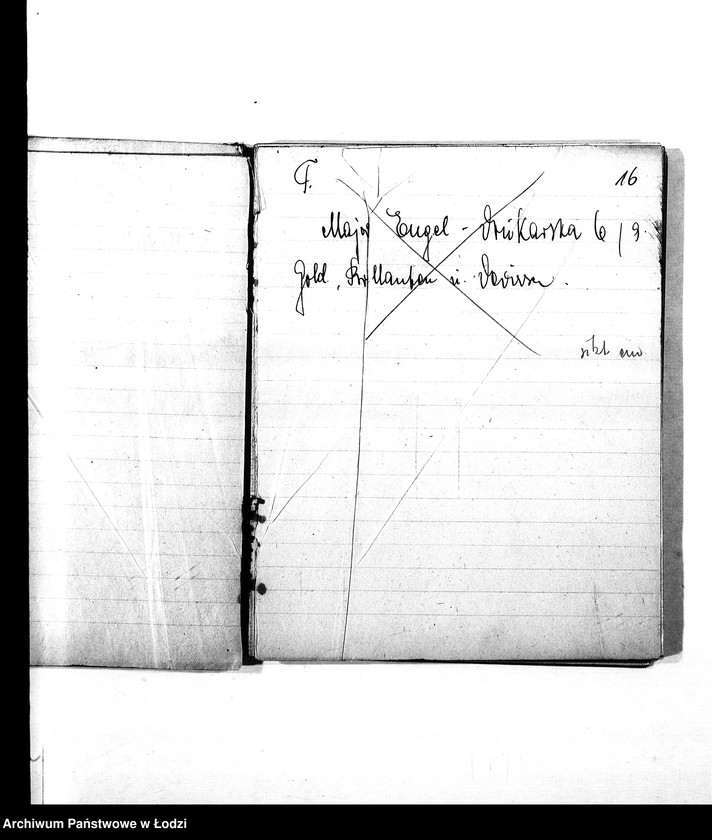 F. 16
Major Engel - Drukarska 6/9.
Gold, Brillanten u. Devisen.
sitzt
Archiwum Państwowe w Łodzi